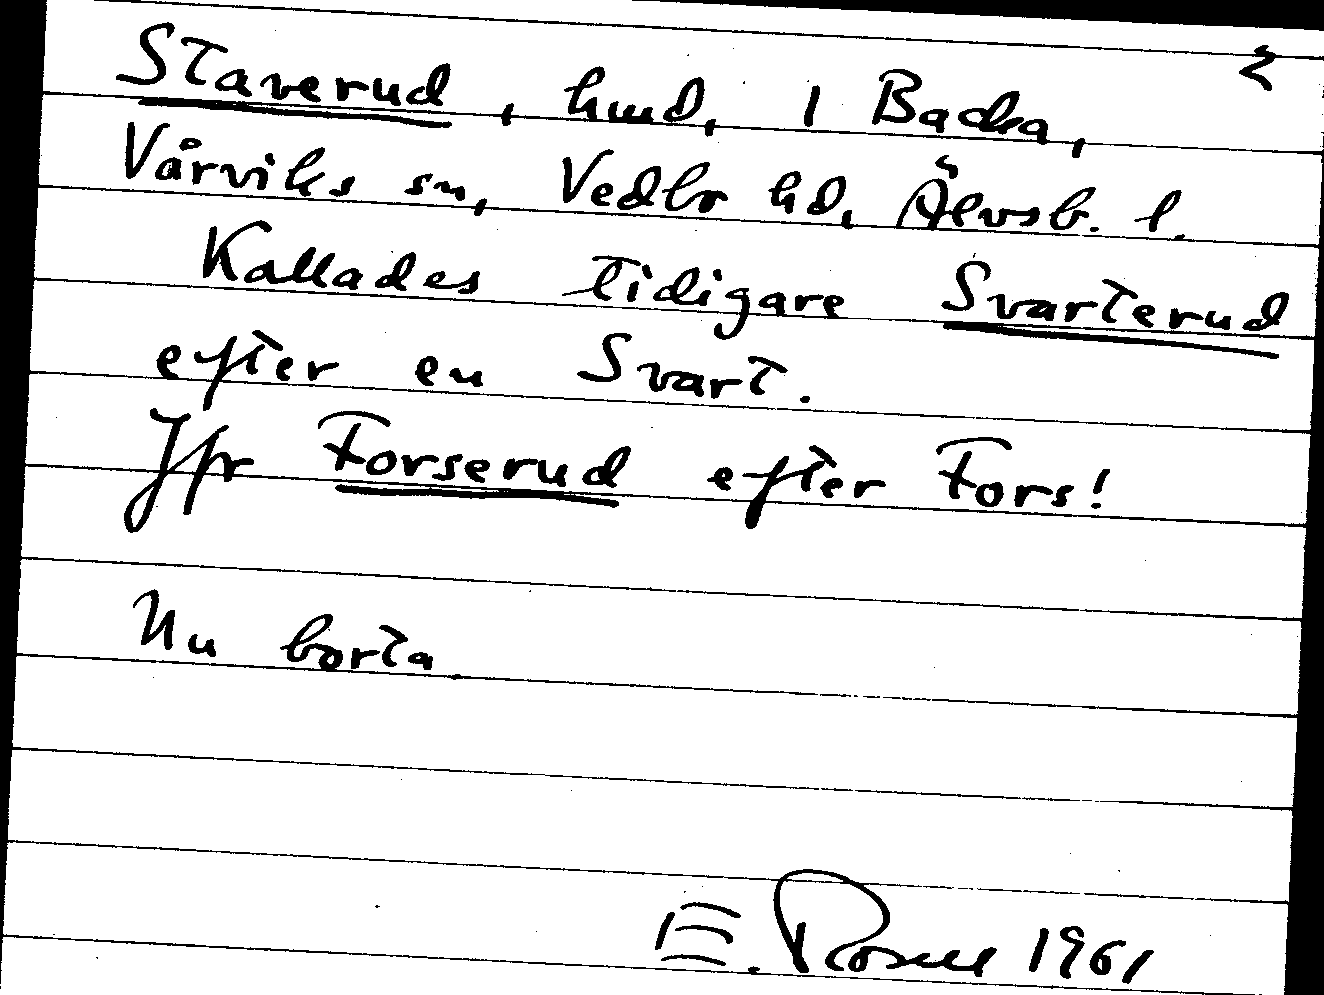 Staverud, hmd, 1 Backa,
Vårviks sn, Vedbo hd, Älvsb. l.
Kallades tidigare Svarterud
efter en Svart.
Jfr Forserud efter Fors!
Nu borta
E. Rosell 1961